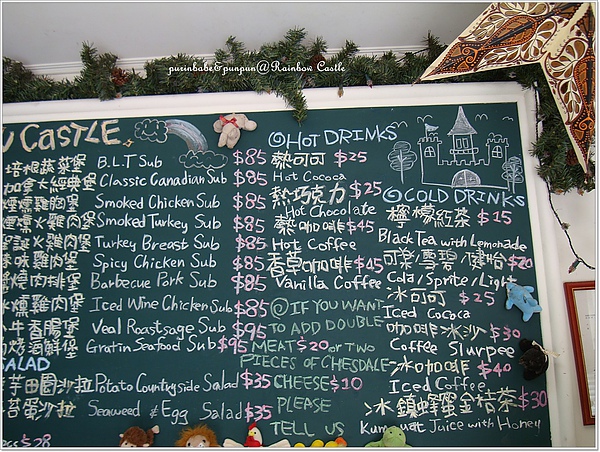 purinbabe&punpun@Rainbow Castle
CASTLE
培根蔬菜堡 B.L.T Sub $85
加拿大經典堡 Classic Canadian Sub $85
煙燻雞胸堡 Smoked Chicken Sub $85
Smoked Turkey Sub $85
火雞肉堡 Turkey Breast Sub $85
味雞肉堡 Spicy Chicken Sub $85
燒肉排堡 Barbecue Pork Sub $85
雞肉堡 Iced Wine Chicken Sub $85
牛香腸堡 Veal Roastsage Sub $95
焗烤海鮮堡 Gratin Seafood Sub $95
SALAD
芋田園沙拉 Potato Countryside Salad $35
苔蛋沙拉 Seaweed & Egg Salad $35
$28
HOT DRINKS
熱可可 $25
Hot Cococa
熱巧克力 $25
Hot Chocolate
熱咖啡 $45
Hot Coffee
香草咖啡 $45
Vanilla Coffee
IF YOU WANT
TO ADD DOUBLE
MEAT $20 or TWO
PIECES OF CHESDALE
CHEESE $10
PLEASE
TELL US
COLD DRINKS
檸檬紅茶 $15
Black Tea with Lemonade
可樂/雪碧/健怡 $20
Cola/Sprite/Light
冰可可 $25
Iced Cococa
咖啡冰沙 $30
Coffee Slurpee
冰咖啡 $40
Iced Coffee
冰鎮蜂蜜金桔茶 $30
Kumquat Juice with Honey